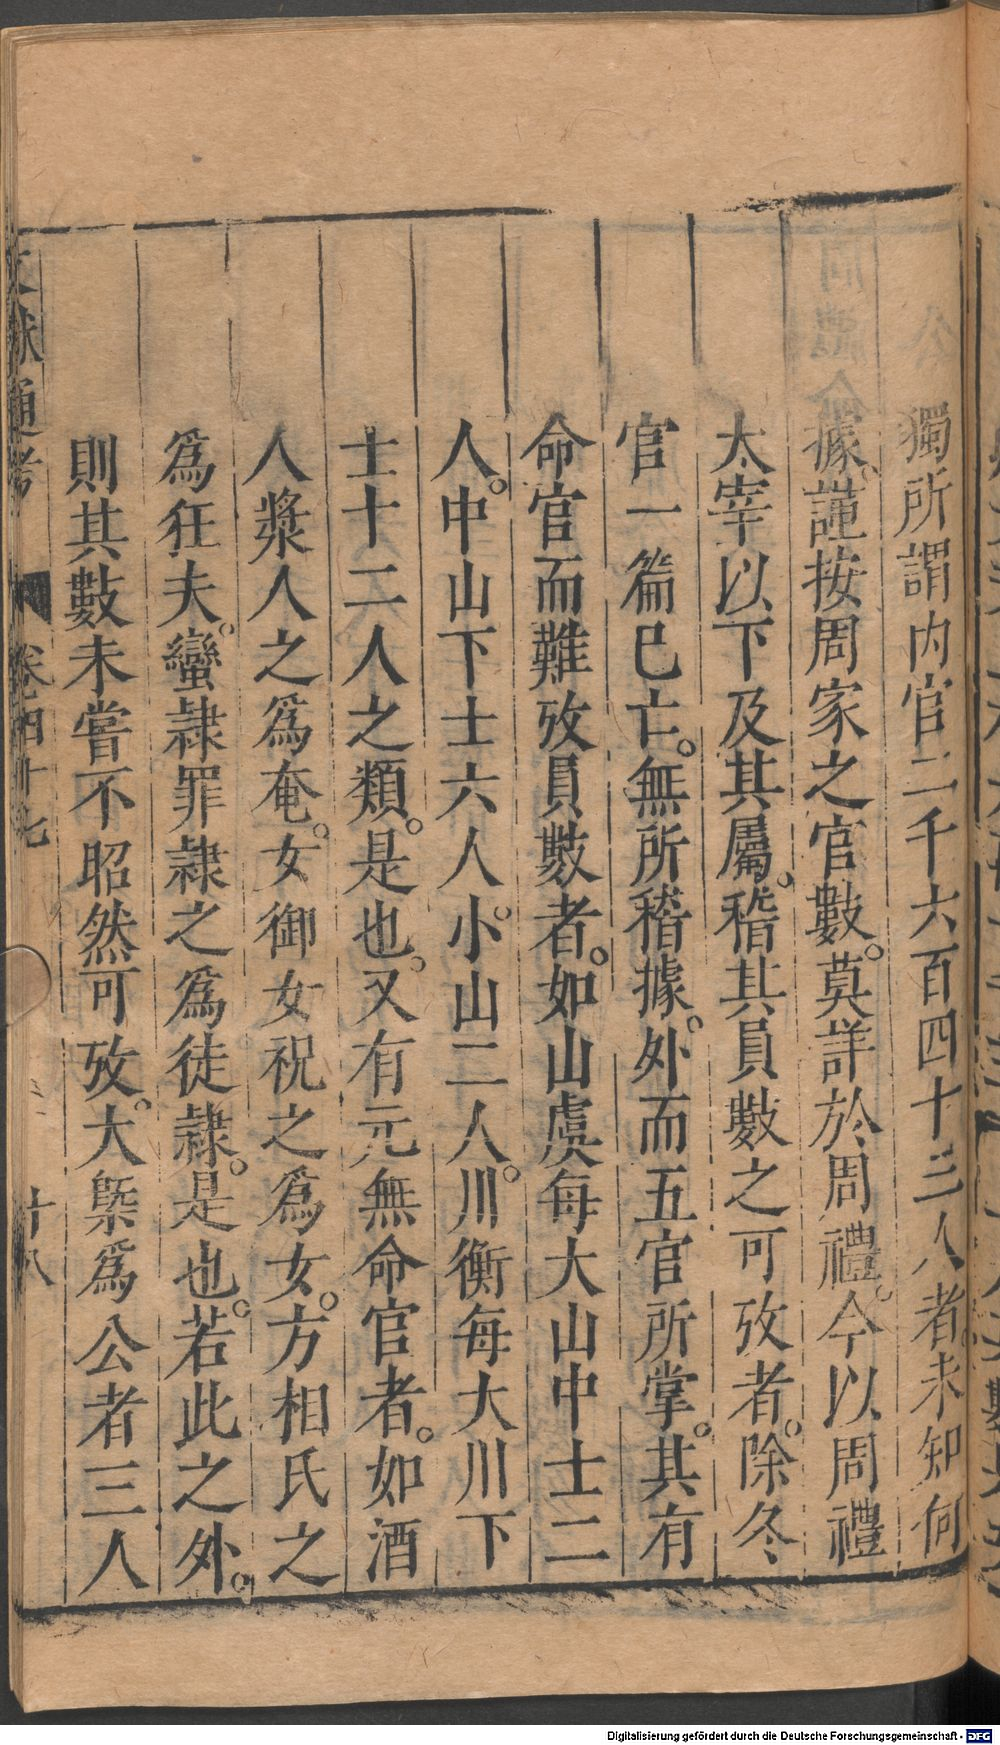 獨所謂内官二千六百四十三人者未知何
據謹按周家之官數。莫詳於周禮。今以周禮
太宰以下及其屬。稽其員數之可攷者。除冬
官一篇已亡。無所稽據。外而五官所掌。其有
命官而難攷員數者。如山虞每大山中士二
人。中山下士六人。小山二人。川衡每大川下
士十二人之類。是也。又有元無命官者。如酒
人漿人之爲奄。女御女祝之爲女。方相氏之
爲狂夫。蠻隷罪隷之爲徒隷。是也。若此之外。
則其數未嘗不昭然可攷。大槩爲公者三人
文獻通考 卷四十七 十八
Digitalisierung gefördert durch die Deutsche Forschungsgemeinschaft - DFG